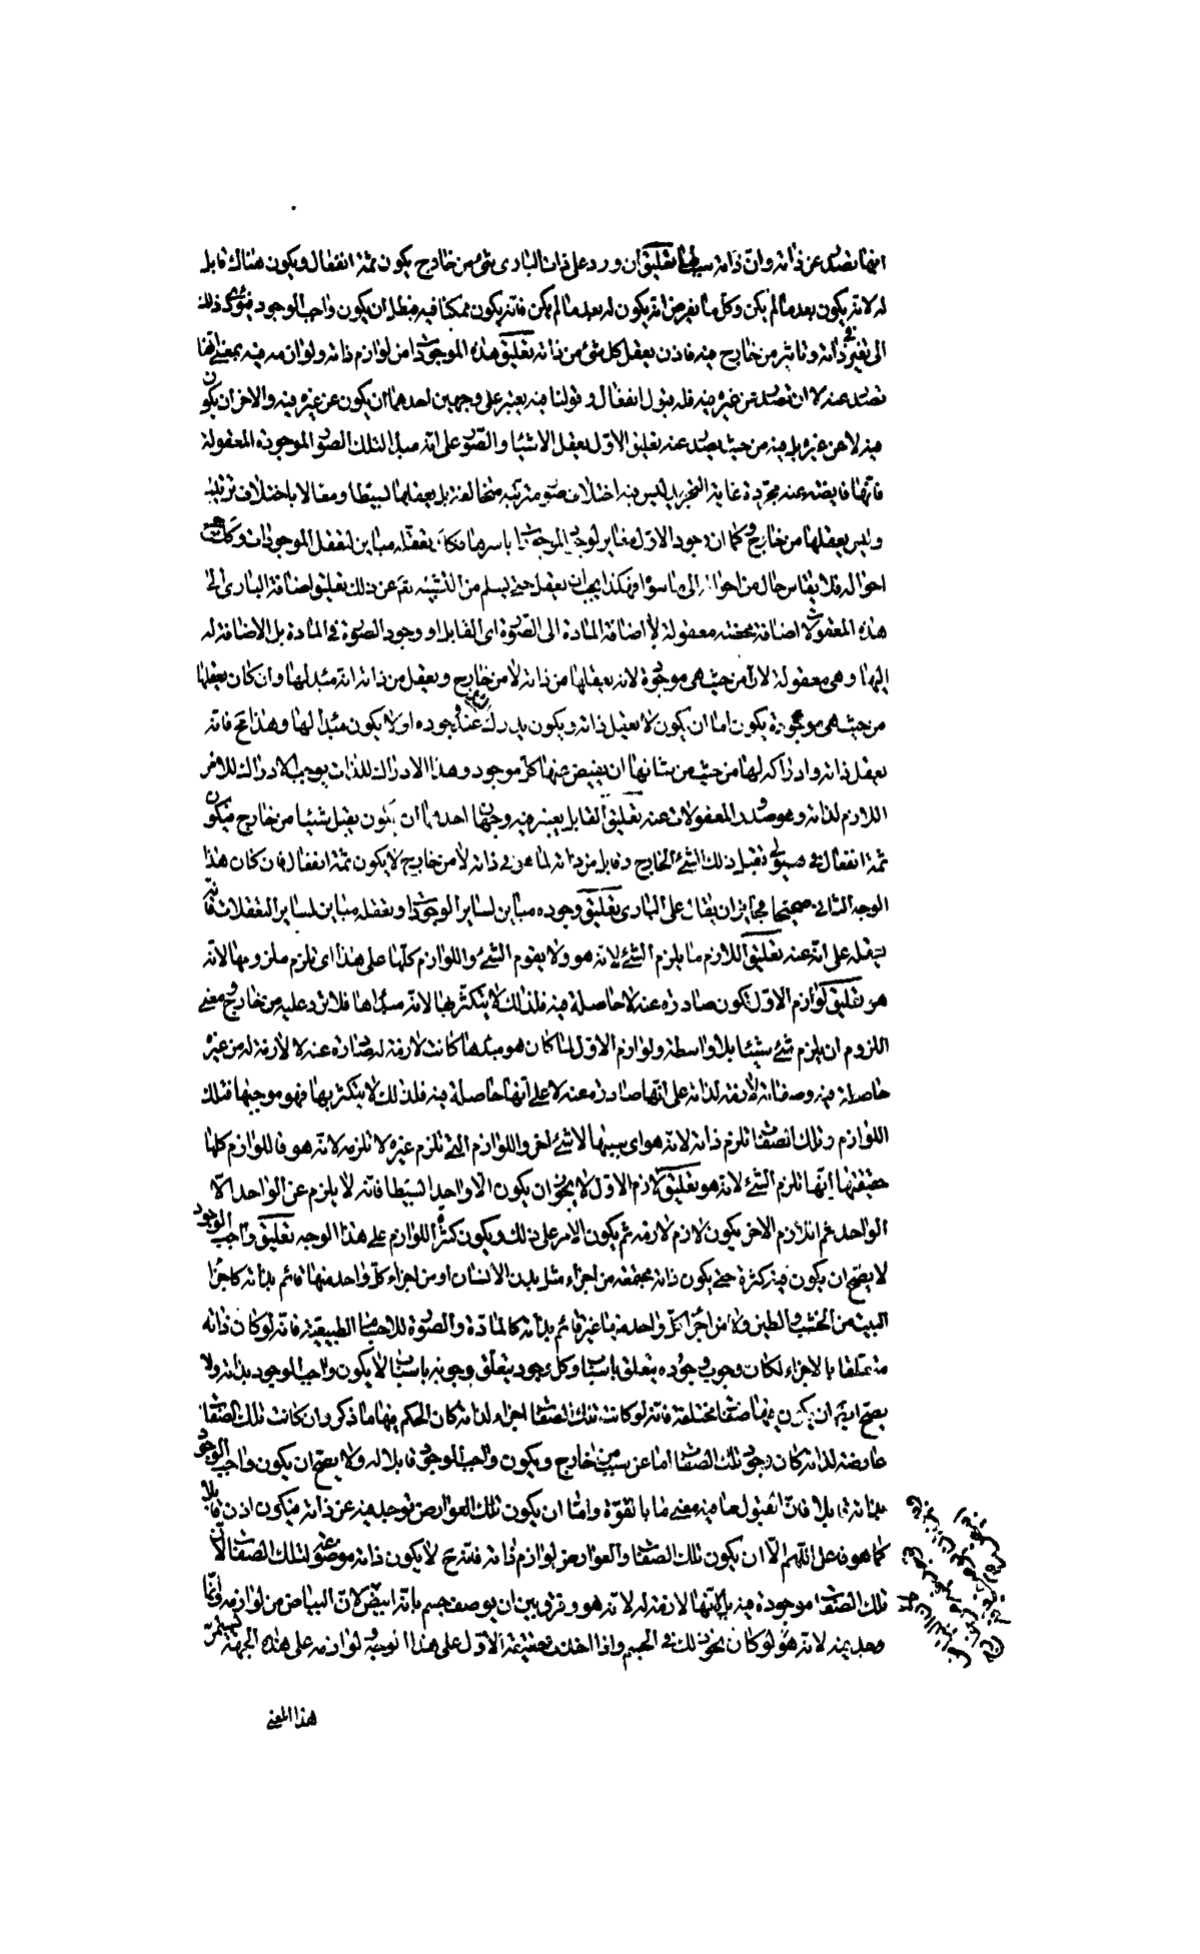 انها تصدر عن ذاته وان ذاته سببها تعليق ان ورد على ذات البارى شئ من خارج يكون ثمة انفعال ويكون هناك قابل
له لانه يكون بعد ما لم يكن وكل ما يفرض انه يكون له بعد ما لم يكن فانه يكون ممكنا فيه فبطل ان يكون واجب الوجود فيؤدى ذلك
الى تغير فى ذاته وتاثير من خارج فيه فاذن يعقل كل شئ من ذاته تعليق هذه الموجودات من لوازم ذاته ولوازمه فيه بمعنى انها
تصدر عنه لا ان تصدر عن غيره فيه فله قبول انفعال وقولنا فيه يعتبر على وجهين احدهما ان يكون عن غيره فيه والاخر ان يكون
فيه لا عن غيره بل فيه من حيث يصدر عنه تعليق الاول يعقل الاشيا والصور على انه مبدا لتلك الصور الموجودة المعقولة
فانها فايضه عنه مجردة غاية التجريد ليس فيه اختلاف صور مترتبه متخالفة بل يعقلها بسيطا ومعا لا باختلاف ترتيب
وليس يعقلها من خارج وكما ان وجود الاول مغاير لوجود الموجودات باسرها فكذا تعقله مباين لتعقل الموجودات وكذا جميع
احواله فلا يقاس حال من احواله الى ما سواه فهكذا يجب ان يعقل حتى يسلم من التشبيه تع عن ذلك تعليق اضافة البارى الى
هذه المعقولات اضافة محضه معقولة لا اضافة المادة الى الصورة اى القابل او وجود الصورة فى المادة بل الاضافة له
اليها وهى معقولة لا من حيث هى موجودة لانه يعقلها من ذاته لا من خارج ويعقل من ذاته انه مبدا لها وان كان يعقلها
من حيث هى موجودة يكون اما ان يكون لا يعقل ذاته ويكون يدرك عند وجوده او لا يكون مبدا لها وهذا مح فانه
يعقل ذاته وادراكه لها من حيث من شانها ان يفيض عنها كل موجود وهذا الادراك للذات يوجب الادراك للامر
اللازم لذاته وهو صدور المعقولات عنه تعليق القابل يعتبر فيه وجهان احدهما ان يكون يقبل شيئا من خارج فيكون
ثمة انفعال فى هيولى تقبل ذلك الشئ الخارج وقابل من ذاته لما هو فى ذاته لا من خارج لا يكون ثمة انفعال فان كان هذا
الوجه الثانى صحيحا فجايز ان يقال على البارى تعليق وجوده مباين لساير الوجودات وتعقله مباين لساير التعقلات فانه
يعقله على انه عنه تعليق اللازم ما يلزم الشئ لانه هو ولا يقوم الشئ واللوازم كلها على هذا اى تلزم ملزومها لانه
هو تعليق لوازم الاول تكون صادره عنه لا حاصلة فيه فلذلك لا يتكثر بها لانه مبداها فلا يرد عليه من خارج ومعنى
اللزوم ان يلزم شئ شيئا بلا واسطة ولوازم الاول لما كان هو مبداها كانت لازمة له صادرة عنه لا لازمة له من غيره
حاصلة فيه وصفاته لازمة لذاته على انها صادرة عنه لا على انها حاصلة فيه فلذلك لا يتكثر بها فهو موجبها فتلك
اللوازم وتلك الصفات تلزم ذاته لانه هو اى سببها لا شئ اخر واللوازم التى تلزم غيره لا تلزمه لانه هو فاللوازم كلها
حقيقتها انها تلزم الشئ لانه هو تعليق لازم الاول لا يجوز ان يكون الا واحدا بسيطا فانه لا يلزم عن الواحد الا
الواحد ثم اللازم الاخر يكون لازم لازمه ثم يكون الامر على ذلك ويكون كثرة اللوازم على هذا الوجه تعليق واجب الوجود
لا يصح ان يكون فيه كثرة حتى يكون ذاته مجتمعه من اجزاء مثل بدن الانسان او من اجزاء كل واحد منها قائم بذاته كاجزا
البيت من الخشب والطين ولا من اجزا كل واحد منها غير قائم بذاته كالمادة والصورة للاجسام الطبيعية فانه لو كان ذاته
متعلقا بالاجزاء لكان وجوب وجوده يتعلق باسباب وكل وجود يتعلق وجوبه باسباب لا يكون واجب الوجود بذاته ولا
يصح ايض ان يكون فيها صفات مختلفة فانه لو كانت تلك الصفات اجزاء لذاته كان الحكم فيها ما ذكر وان كانت تلك الصفات
عارضة لذاته كان وجود تلك الصفات اما عن سبب من خارج ويكون واجب الوجود قابلا له ولا يصح ان يكون واجب الوجود
بذاته قابلا فان القبول لما فيه معنى ما بالقوة واما ان يكون تلك العوارض توجد فيه عن ذاته فيكون اذن قابلا
كما هو فاعل اللهم الا ان يكون تلك الصفات والعوارض لوازم ذاته فانه ح لا يكون ذاته موضوعة لتلك الصفات لان
تلك الصفات موجودة فيه بل لانها لازمة له لانه هو وفرق بين ان يوصف جسم بانه ابيض لان البياض من لوازمه وانما
وجد فيه لانه هو لو كان يجوز ذلك فى الجسم واذا اخذت حقيقة الاول على هذا الوجه ولوازمه على هذه الجهة استمر
هذا المعنى